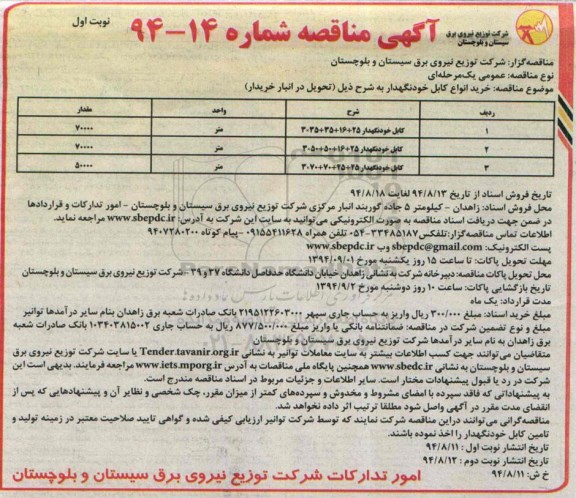 نوبت اول
شرکت توزیع نیروی برق
سیستان و بلوچستان
آگهی مناقصه شماره ۱۴-۹۴
مناقصه‌گزار: شرکت توزیع نیروی برق سیستان و بلوچستان
نوع مناقصه: عمومی یک‌مرحله‌ای
موضوع مناقصه: خرید انواع کابل خودنگهدار به شرح ذیل (تحویل در انبار خریدار)
ردیف شرح واحد مقدار
۱ کابل خودنگهدار ۲۵+۱۶+۳۵+۳۵*۳ متر ۷۰۰۰۰
۲ کابل خودنگهدار ۲۵+۱۶+۵۰+۵۰*۳ متر ۷۰۰۰۰
۳ کابل خودنگهدار ۲۵+۲۵+۷۰+۷۰*۳ متر ۵۰۰۰۰
تاریخ فروش اسناد از تاریخ ۹۴/۸/۱۳ لغایت ۹۴/۸/۱۸
محل فروش اسناد: زاهدان - کیلومتر ۵ جاده گوربند انبار مرکزی شرکت توزیع نیروی برق سیستان و بلوچستان - امور تدارکات و قراردادها
در ضمن جهت دریافت اسناد مناقصه به صورت الکترونیکی می‌توانید به سایت این شرکت به آدرس: www.sbepdc.ir مراجعه نماید.
اطلاعات تماس مناقصه‌گزار:تلفکس۳۳۴۸۵۱۸۷-۰۵۴ تلفن همراه ۰۹۱۵۵۴۱۱۶۲۸ -پیام کوتاه ۹۴۰۷۲۸۰۲۰۰
پست الکترونیک: sbepdc@gmail.com وب www.sbepdc.ir
مهلت تحویل پاکات: تا ساعت ۱۵ روز یکشنبه مورخ ۱۳۹۴/۰۹/۰۱
محل تحویل پاکات مناقصه: دبیرخانه شرکت به نشانی زاهدان خیابان دانشگاه حدفاصل دانشگاه ۳۷ و ۳۹ -شرکت توزیع نیروی برق سیستان و بلوچستان
تاریخ بازگشایی پاکات: ساعت ۱۰ روز دوشنبه مورخ ۱۳۹۴/۹/۲
مدت قرارداد: یک ماه
مبلغ خرید اسناد: مبلغ ۳۰۰/۰۰۰ ریال واریز به حساب جاری سپهر ۲۱۹۵۱۲۲۶۰۳۰۰۰ بانک صادرات شعبه برق زاهدان بنام سایر درآمدها توانیر
مبلغ و نوع تضمین شرکت در مناقصه: ضمانتنامه بانکی یا واریز مبلغ ۸۷۷/۵۰۰/۰۰۰ ریال به حساب جاری ۱۰۳۴۰۳۸۱۵۰۰۲ بانک صادرات شعبه
برق زاهدان به نام سایر درآمدها شرکت توزیع نیروی برق سیستان و بلوچستان
متقاضیان می‌توانند جهت کسب اطلاعات بیشتر به سایت معاملات توانیر به نشانی Tender.tavanir.org.ir یا سایت شرکت توزیع نیروی برق
سیستان و بلوچستان به نشانی www.sbedc.ir همچنین پایگاه ملی مناقصات به آدرس www.iets.mporg.ir مراجعه فرمایند. بدیهی است این
شرکت در رد یا قبول پیشنهادات مختار است. سایر اطلاعات و جزئیات مربوط در اسناد مناقصه مندرج است.
به پیشنهاداتی که فاقد سپرده با امضای مشروط و مخدوش و سپرده‌های کمتر از میزان مقرر، چک شخصی و نظایر آن و پیشنهادهایی که پس از
انقضای مدت مقرر در آگهی واصل شود مطلقا ترتیب اثر داده نخواهد شد.
مناقصه‌گرانی می‌توانند در این مناقصه شرکت نمایند که توسط شرکت توانیر ارزیابی کیفی شده و گواهی تایید صلاحیت معتبر در زمینه تولید و
تامین کابل خودنگهدار را اخذ نموده باشند.
تاریخ انتشار نوبت اول : ۹۴/۸/۱۱
تاریخ انتشار نوبت دوم : ۹۴/۸/۱۲
خ ش: ۹۴/۸/۱۱
امور تدارکات شرکت توزیع نیروی برق سیستان و بلوچستان